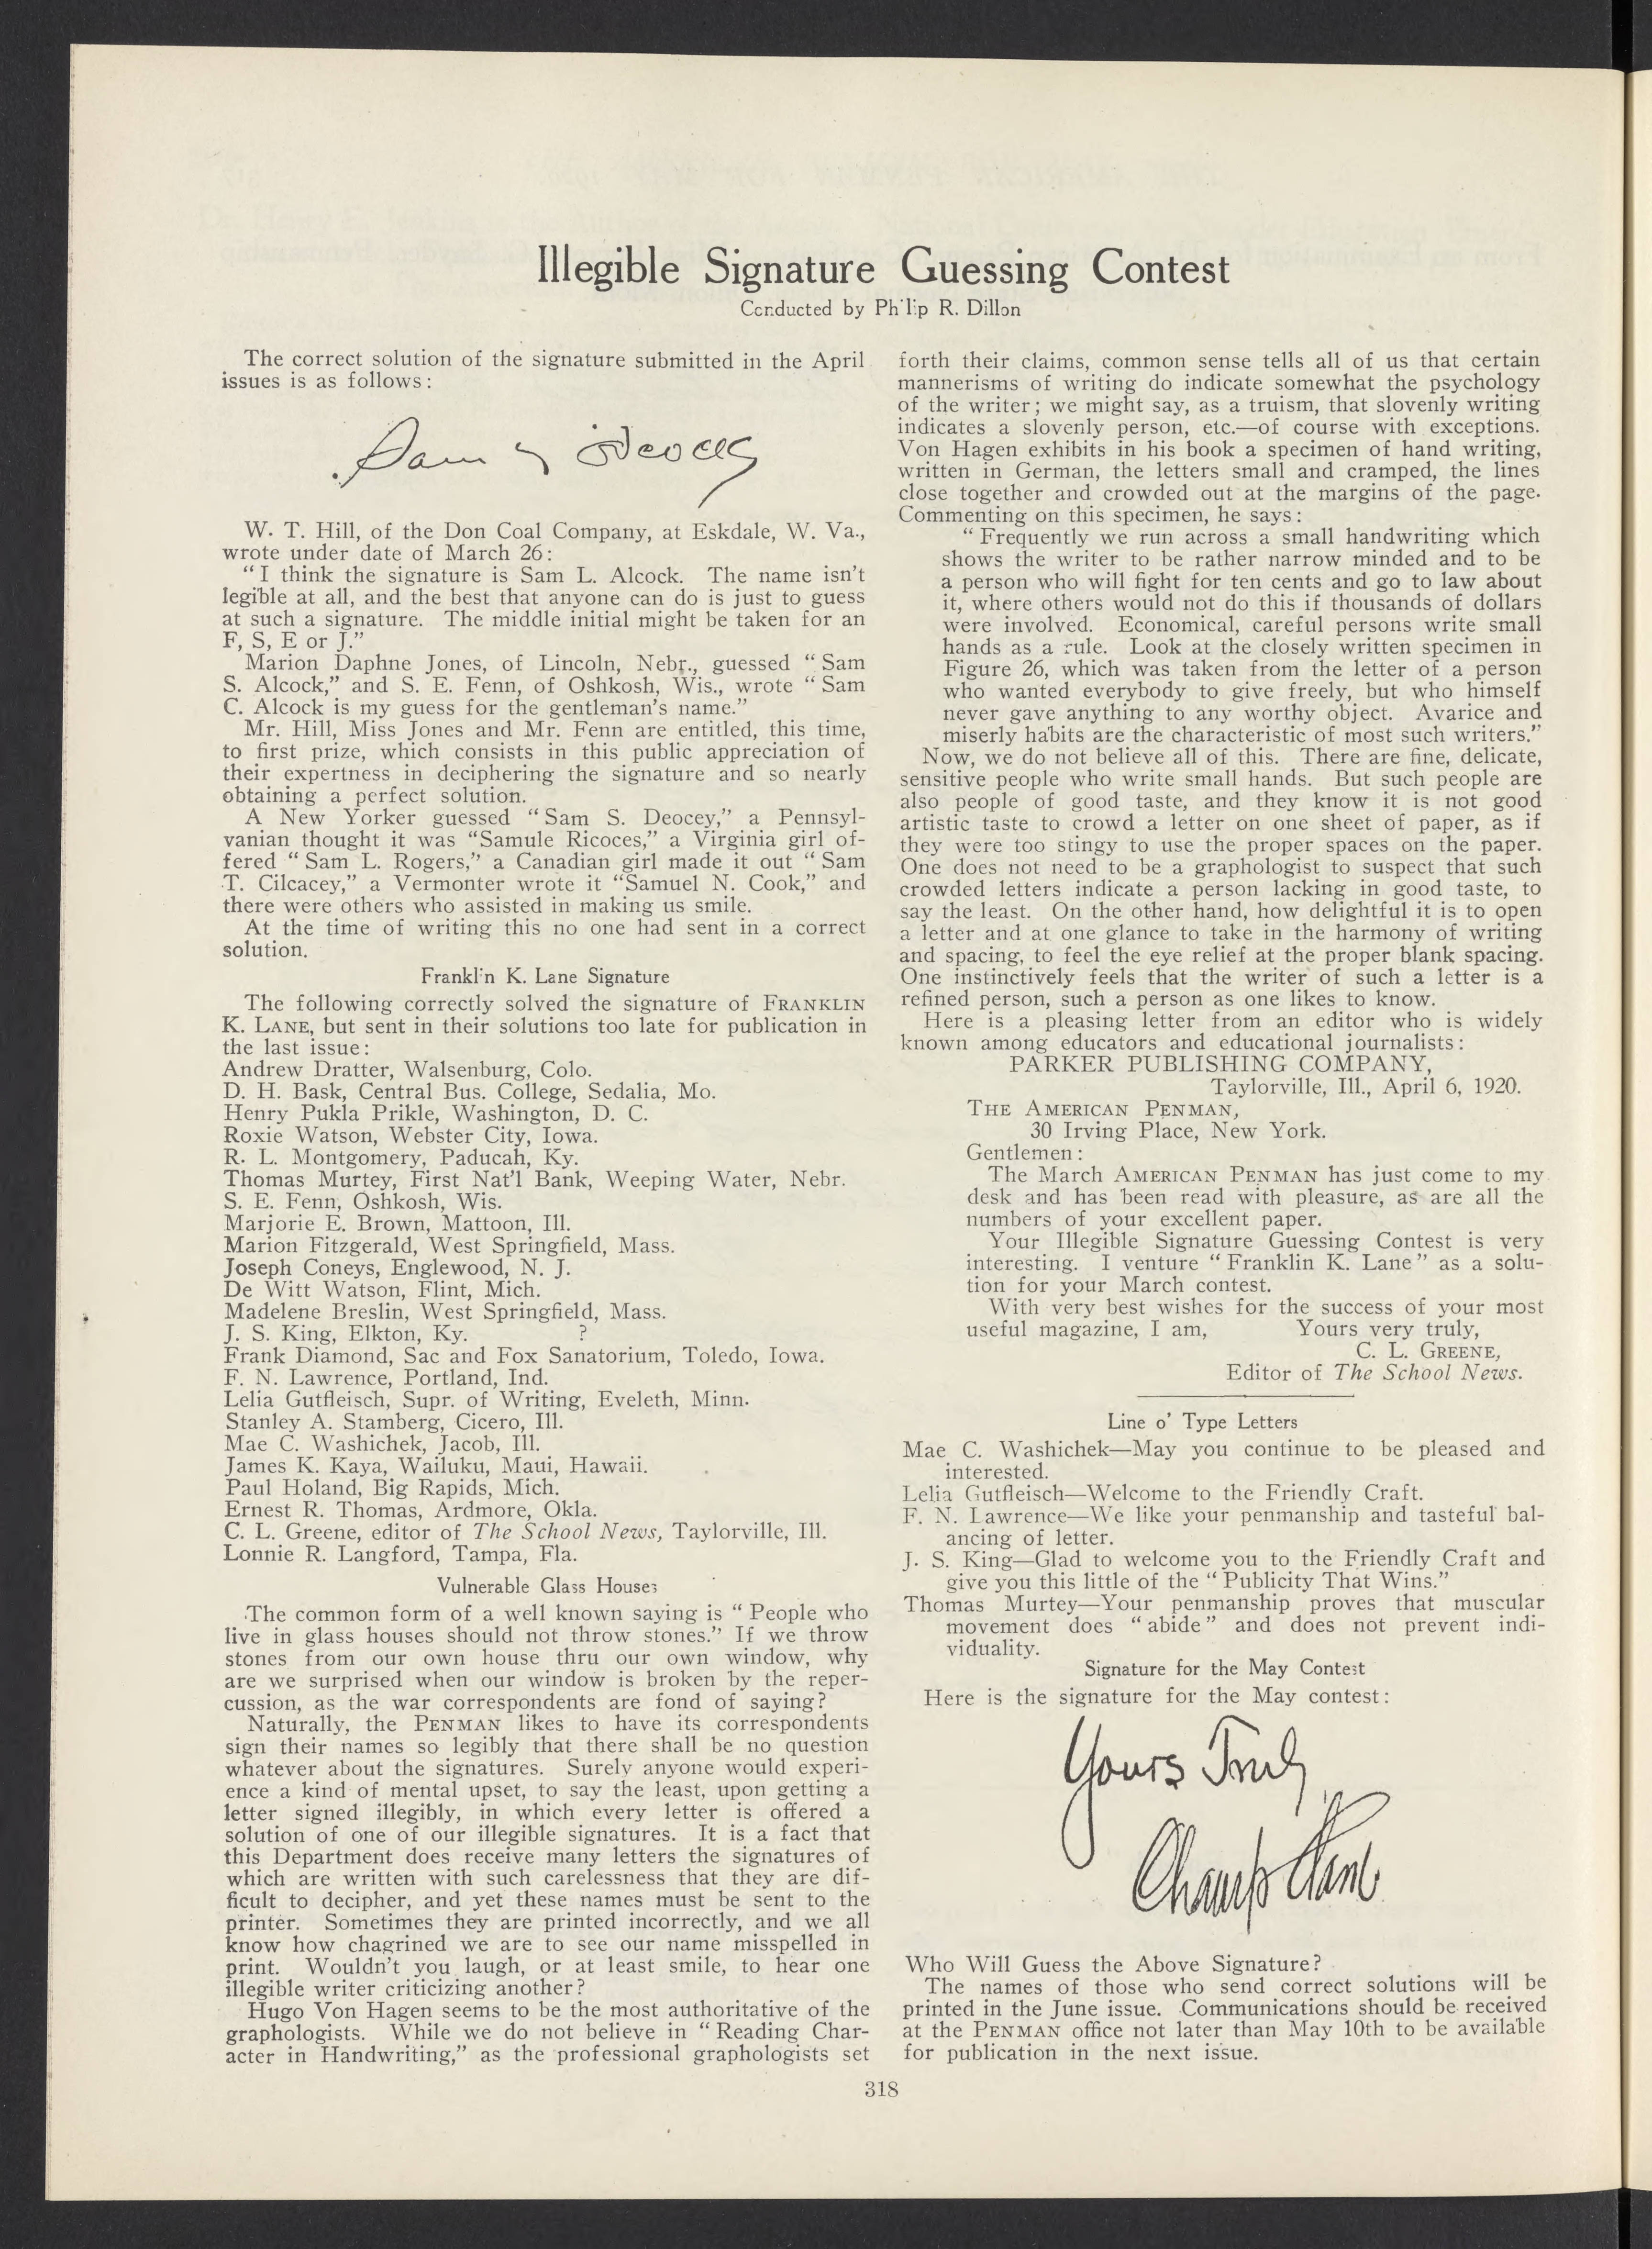 Illegible Signature Guessing Contest
Conducted by Philip R. Dillon
The correct solution of the signature submitted in the April
issues is as follows:
W. T. Hill, of the Don Coal Company, at Eskdale, W. Va.,
wrote under date of March 26:
"I think the signature is Sam L. Alcock. The name isn't
legible at all, and the best that anyone can do is just to guess
at such a signature. The middle initial might be taken for an
F, S, E or J."
Marion Daphne Jones, of Lincoln, Nebr., guessed "Sam
S. Alcock," and S. E. Fenn, of Oshkosh, Wis., wrote "Sam
C. Alcock is my guess for the gentleman's name."
Mr. Hill, Miss Jones and Mr. Fenn are entitled, this time,
to first prize, which consists in this public appreciation of
their expertness in deciphering the signature and so nearly
obtaining a perfect solution.
A New Yorker guessed "Sam S. Deocey," a Pennsyl-
vanian thought it was "Samule Ricoces," a Virginia girl of-
fered "Sam L. Rogers," a Canadian girl made it out "Sam
T. Cilcacey," a Vermonter wrote it "Samuel N. Cook," and
there were others who assisted in making us smile.
At the time of writing this no one had sent in a correct
solution.
Franklin K. Lane Signature
The following correctly solved the signature of FRANKLIN
K. LANE, but sent in their solutions too late for publication in
the last issue:
Andrew Dratter, Walsenburg, Colo.
D. H. Bask, Central Bus. College, Sedalia, Mo.
Henry Pukla Prikle, Washington, D. C.
Roxie Watson, Webster City, Iowa.
R. L. Montgomery, Paducah, Ky.
Thomas Murtey, First Nat'l Bank, Weeping Water, Nebr.
S. E. Fenn, Oshkosh, Wis.
Marjorie E. Brown, Mattoon, Ill.
Marion Fitzgerald, West Springfield, Mass.
Joseph Coneys, Englewood, N. J.
De Witt Watson, Flint, Mich.
Madelene Breslin, West Springfield, Mass.
J. S. King, Elkton, Ky. ?
Frank Diamond, Sac and Fox Sanatorium, Toledo, Iowa.
F. N. Lawrence, Portland, Ind.
Lelia Gutfleisch, Supr. of Writing, Eveleth, Minn.
Stanley A. Stamberg, Cicero, Ill.
Mae C. Washichek, Jacob, Ill.
James K. Kaya, Wailuku, Maui, Hawaii.
Paul Holand, Big Rapids, Mich.
Ernest R. Thomas, Ardmore, Okla.
C. L. Greene, editor of The School News, Taylorville, Ill.
Lonnie R. Langford, Tampa, Fla.
Vulnerable Glass Houses
The common form of a well known saying is "People who
live in glass houses should not throw stones." If we throw
stones from our own house thru our own window, why
are we surprised when our window is broken by the reper-
cussion, as the war correspondents are fond of saying?
Naturally, the PENMAN likes to have its correspondents
sign their names so legibly that there shall be no question
whatever about the signatures. Surely anyone would experi-
ence a kind of mental upset, to say the least, upon getting a
letter signed illegibly, in which every letter is offered a
solution of one of our illegible signatures. It is a fact that
this Department does receive many letters the signatures of
which are written with such carelessness that they are dif-
ficult to decipher, and yet these names must be sent to the
printer. Sometimes they are printed incorrectly, and we all
know how chagrined we are to see our name misspelled in
print. Wouldn't you laugh, or at least smile, to hear one
illegible writer criticizing another?
Hugo Von Hagen seems to be the most authoritative of the
graphologists. While we do not believe in "Reading Char-
acter in Handwriting," as the professional graphologists set
forth their claims, common sense tells all of us that certain
mannerisms of writing do indicate somewhat the psychology
of the writer; we might say, as a truism, that slovenly writing
indicates a slovenly person, etc.—of course with exceptions.
Von Hagen exhibits in his book a specimen of hand writing,
written in German, the letters small and cramped, the lines
close together and crowded out at the margins of the page.
Commenting on this specimen, he says:
"Frequently we run across a small handwriting which
shows the writer to be rather narrow minded and to be
a person who will fight for ten cents and go to law about
it, where others would not do this if thousands of dollars
were involved. Economical, careful persons write small
hands as a rule. Look at the closely written specimen in
Figure 26, which was taken from the letter of a person
who wanted everybody to give freely, but who himself
never gave anything to any worthy object. Avarice and
miserly habits are the characteristic of most such writers."
Now, we do not believe all of this. There are fine, delicate,
sensitive people who write small hands. But such people are
also people of good taste, and they know it is not good
artistic taste to crowd a letter on one sheet of paper, as if
they were too stingy to use the proper spaces on the paper.
One does not need to be a graphologist to suspect that such
crowded letters indicate a person lacking in good taste, to
say the least. On the other hand, how delightful it is to open
a letter and at one glance to take in the harmony of writing
and spacing, to feel the eye relief at the proper blank spacing.
One instinctively feels that the writer of such a letter is a
refined person, such a person as one likes to know.
Here is a pleasing letter from an editor who is widely
known among educators and educational journalists:
PARKER PUBLISHING COMPANY,
Taylorville, Ill., April 6, 1920.
THE AMERICAN PENMAN,
30 Irving Place, New York.
Gentlemen:
The March AMERICAN PENMAN has just come to my
desk and has been read with pleasure, as are all the
numbers of your excellent paper.
Your Illegible Signature Guessing Contest is very
interesting. I venture "Franklin K. Lane" as a solu-
tion for your March contest.
With very best wishes for the success of your most
useful magazine, I am, Yours very truly,
C. L. GREENE,
Editor of The School News.
Line o' Type Letters
Mae C. Washichek—May you continue to be pleased and
interested.
Lelia Gutfleisch—Welcome to the Friendly Craft.
F. N. Lawrence—We like your penmanship and tasteful bal-
ancing of letter.
J. S. King—Glad to welcome you to the Friendly Craft and
give you this little of the "Publicity That Wins."
Thomas Murtey—Your penmanship proves that muscular
movement does "abide" and does not prevent indi-
viduality.
Signature for the May Contest
Here is the signature for the May contest:
Yours Truly
Champ
Who Will Guess the Above Signature?
The names of those who send correct solutions will be
printed in the June issue. Communications should be received
at the PENMAN office not later than May 10th to be available
for publication in the next issue.
318